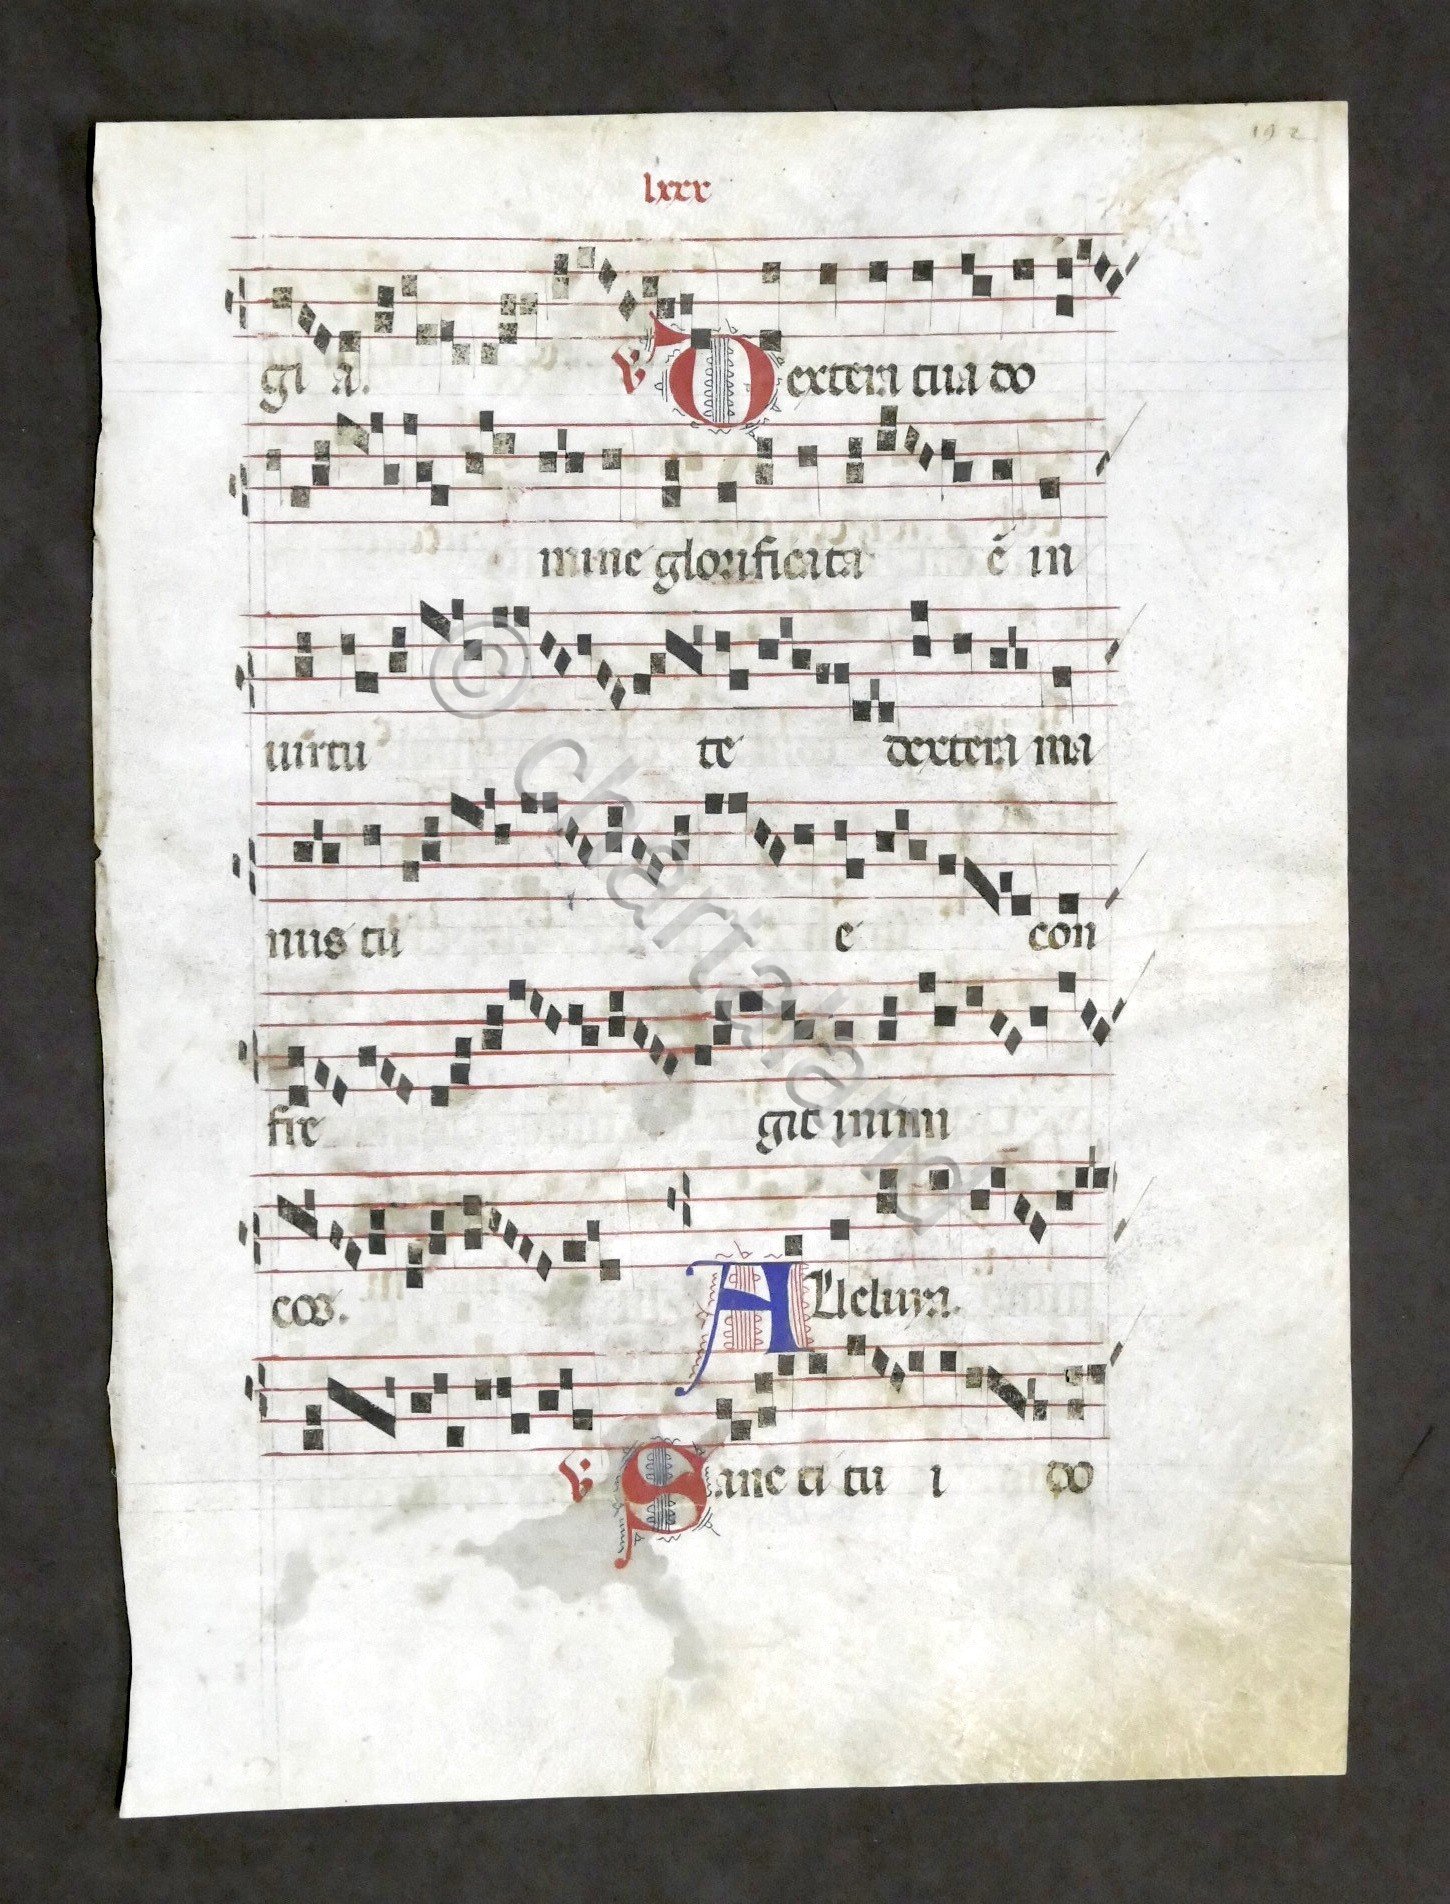 192
lxxx
gi a. V Dextera tua do
mine glorificata ē in
uirtu te dextera ma
nus tu e con
fre git inimi
cos. Alleluya.
V Sancti tu i do
© chartaland